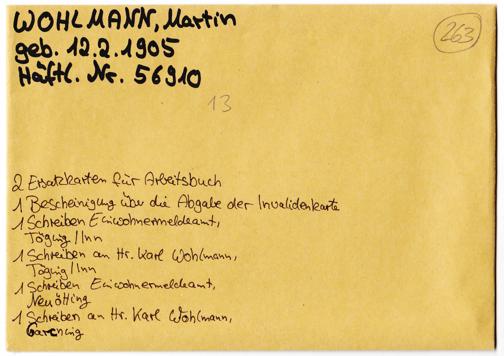 WOHLMANN, Martin
geb. 12.2.1905
Häftl. Nr. 56910
263
13
2 Ersatzkarten für Arbeitsbuch
1 Bescheinigung über die Abgabe der Invalidenkarte
1 Schreiben Einwohnermeldeamt,
Töging/Inn
1 Schreiben an Hr. Karl Wohlmann,
Töging/Inn
1 Schreiben Einwohnermeldeamt,
Neuötting
1 Schreiben an Hr. Karl Wohlmann,
Garching